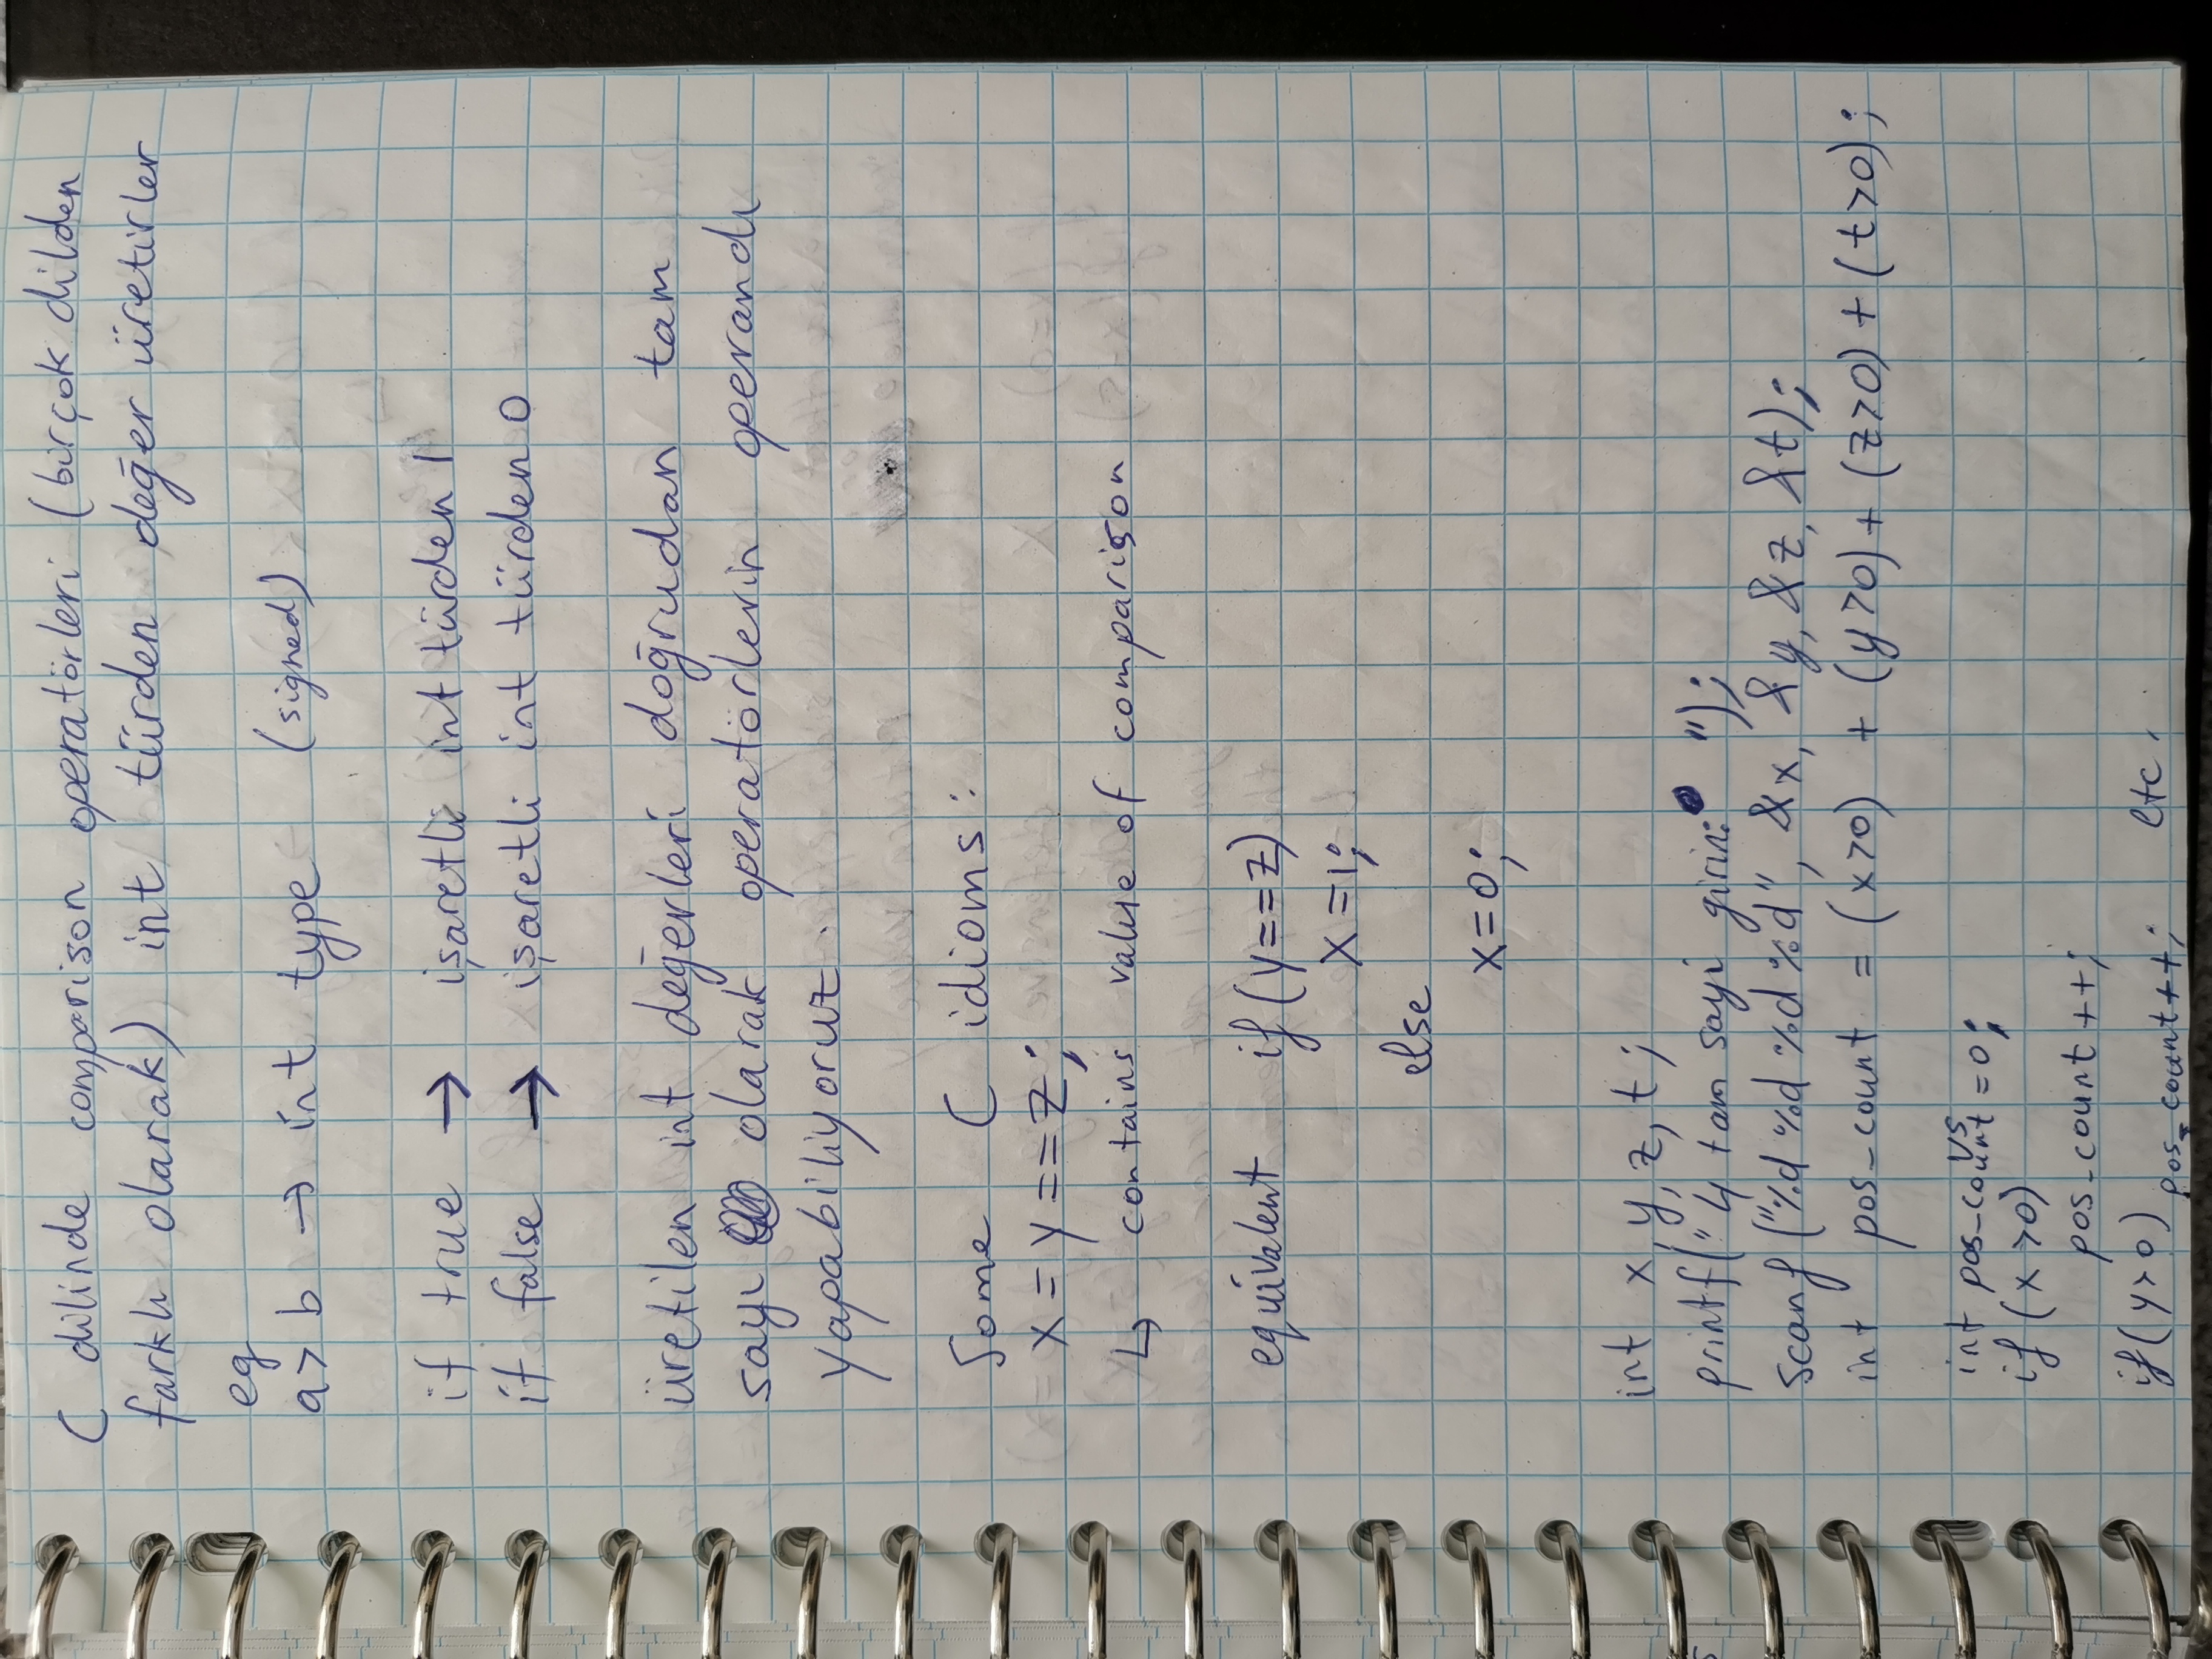 C dilinde comparison operatörleri (birçok dilden
farklı olarak) int türden değer üretirler
eg
a > b → int type (signed)
if true → işaretli int türden 1
if false → işaretli int türden 0
üretilen int değerleri doğrudan tam
sayı olarak operatörlerin operandı
yapabiliyoruz.
Some C idioms:
x = y == z;
↳ contains value of comparison
equivalent if (y==z)
x = 1;
else
x=0;
int x, y, z, t;
printf("4 tam sayi girin: ");
scanf("%d %d %d %d", &x, &y, &z, &t);
int pos_count = (x>0) + (y>0) + (z>0) + (t>0);
vs
int pos_count = 0;
if (x >0)
pos_count ++;
if (y>0) pos_count++; etc.